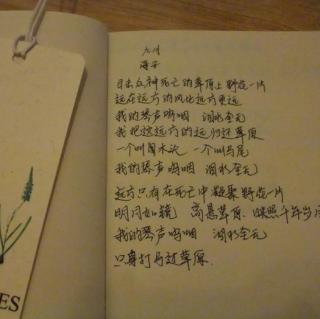 九月
海子
目击众神死亡的草原上野花一片
远在远方的风比远方更远
我的琴声呜咽 泪水全无
我把这远方的远归还草原
一个叫木头 一个叫马尾
我的琴声呜咽 泪水全无
远方只有在死亡中凝聚野花一片
明月如镜 高悬草原 映照千年岁月
我的琴声呜咽 泪水全无
只身打马过草原
ES